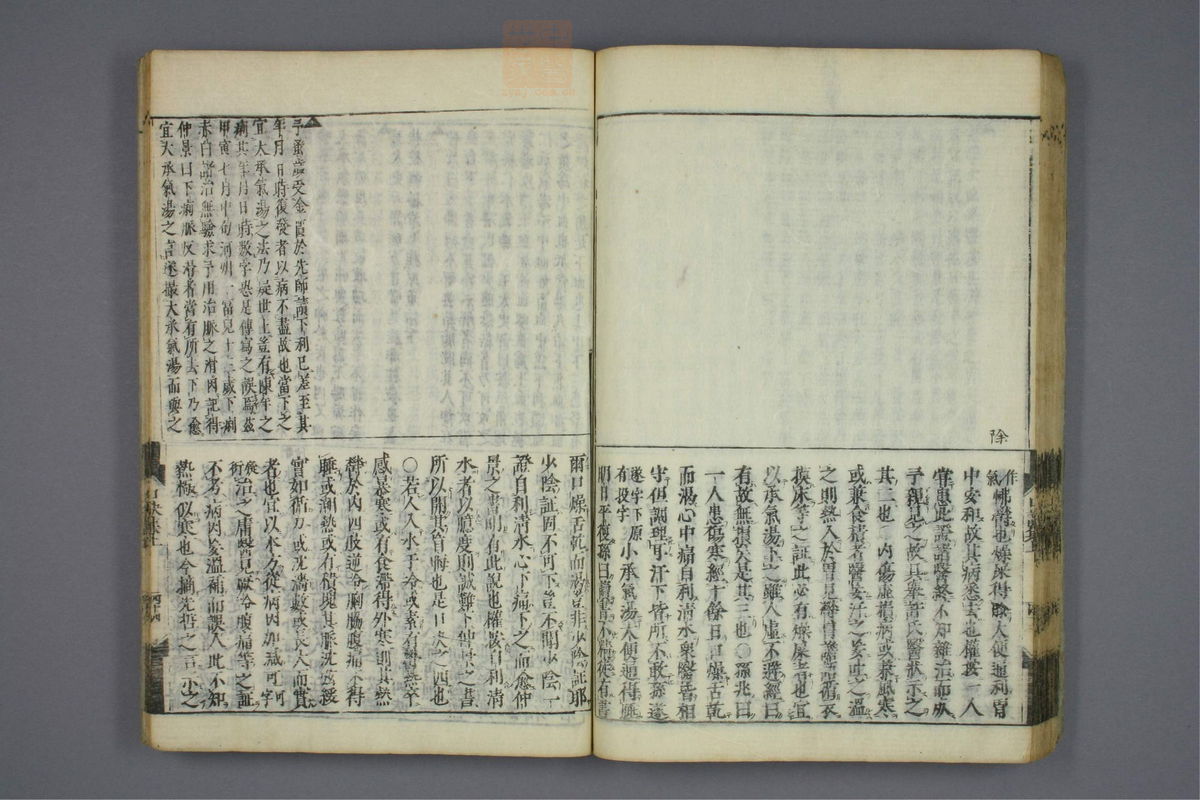 除
作
氣怫鬱也燥屎得除大便通利胃
中安和故其病悉去也權曰一人
常患此證諸醫終不知雜治而
予親見之故具舉許氏醫狀示之
其二也○內傷虛損病或兼風寒
或兼食積者醫妄汗之妄吐之溫
之則熱入於胃見譫語
摸床等之証此必有燥屎者也宜
以承氣湯下之雖人虛不避經曰
有故無損是其三也○孫兆曰
一人患傷寒經十餘日口燥舌乾
而渴心中痛自利清水眾醫皆相
守但調理耳汗下皆所不敢孫遂
遂字下原
有投字
小承氣湯大便通得睡
明日平復孫曰讀書不
爾口燥舌乾而渴豈非少陰証耶
少陰証固不可下豈不聞少陰一
證自利清水心下痛下之而愈仲
景之書明有此說也權按自利清
水者以臆度則誠難下仲景之書
所以開其盲晦也是口訣之四也
○若人入水于冷或素有
感暴寒或有食滯得外寒則其熱
鬱於內四肢逆冷胸腸腹痛不得
睡或潮熱或有積塊其脈沉緩
實如循刀或沉滿數或長大而實
者也宜以本方從病因加減可字可
衍治之庸醫見厥冷腹痛等之証
不考病因妄溫補而誤人此不知
熱極似寒也今摘先哲之言示之
予
受金匱於先師讀下利已差至其
年月日時復發者以病不盡故也當下之
宜大承氣湯之法乃是世上豈有陳年之
痢其年月日時數字恐是傳寫之誤
茲
甲寅七月中旬河州一富兒十二歲下痢
赤白諸治無驗求予用治脈之滑因記得
仲景曰下痢脈反滑者當有所去下乃愈
宜大承氣湯之言遂撮大承氣湯而與之